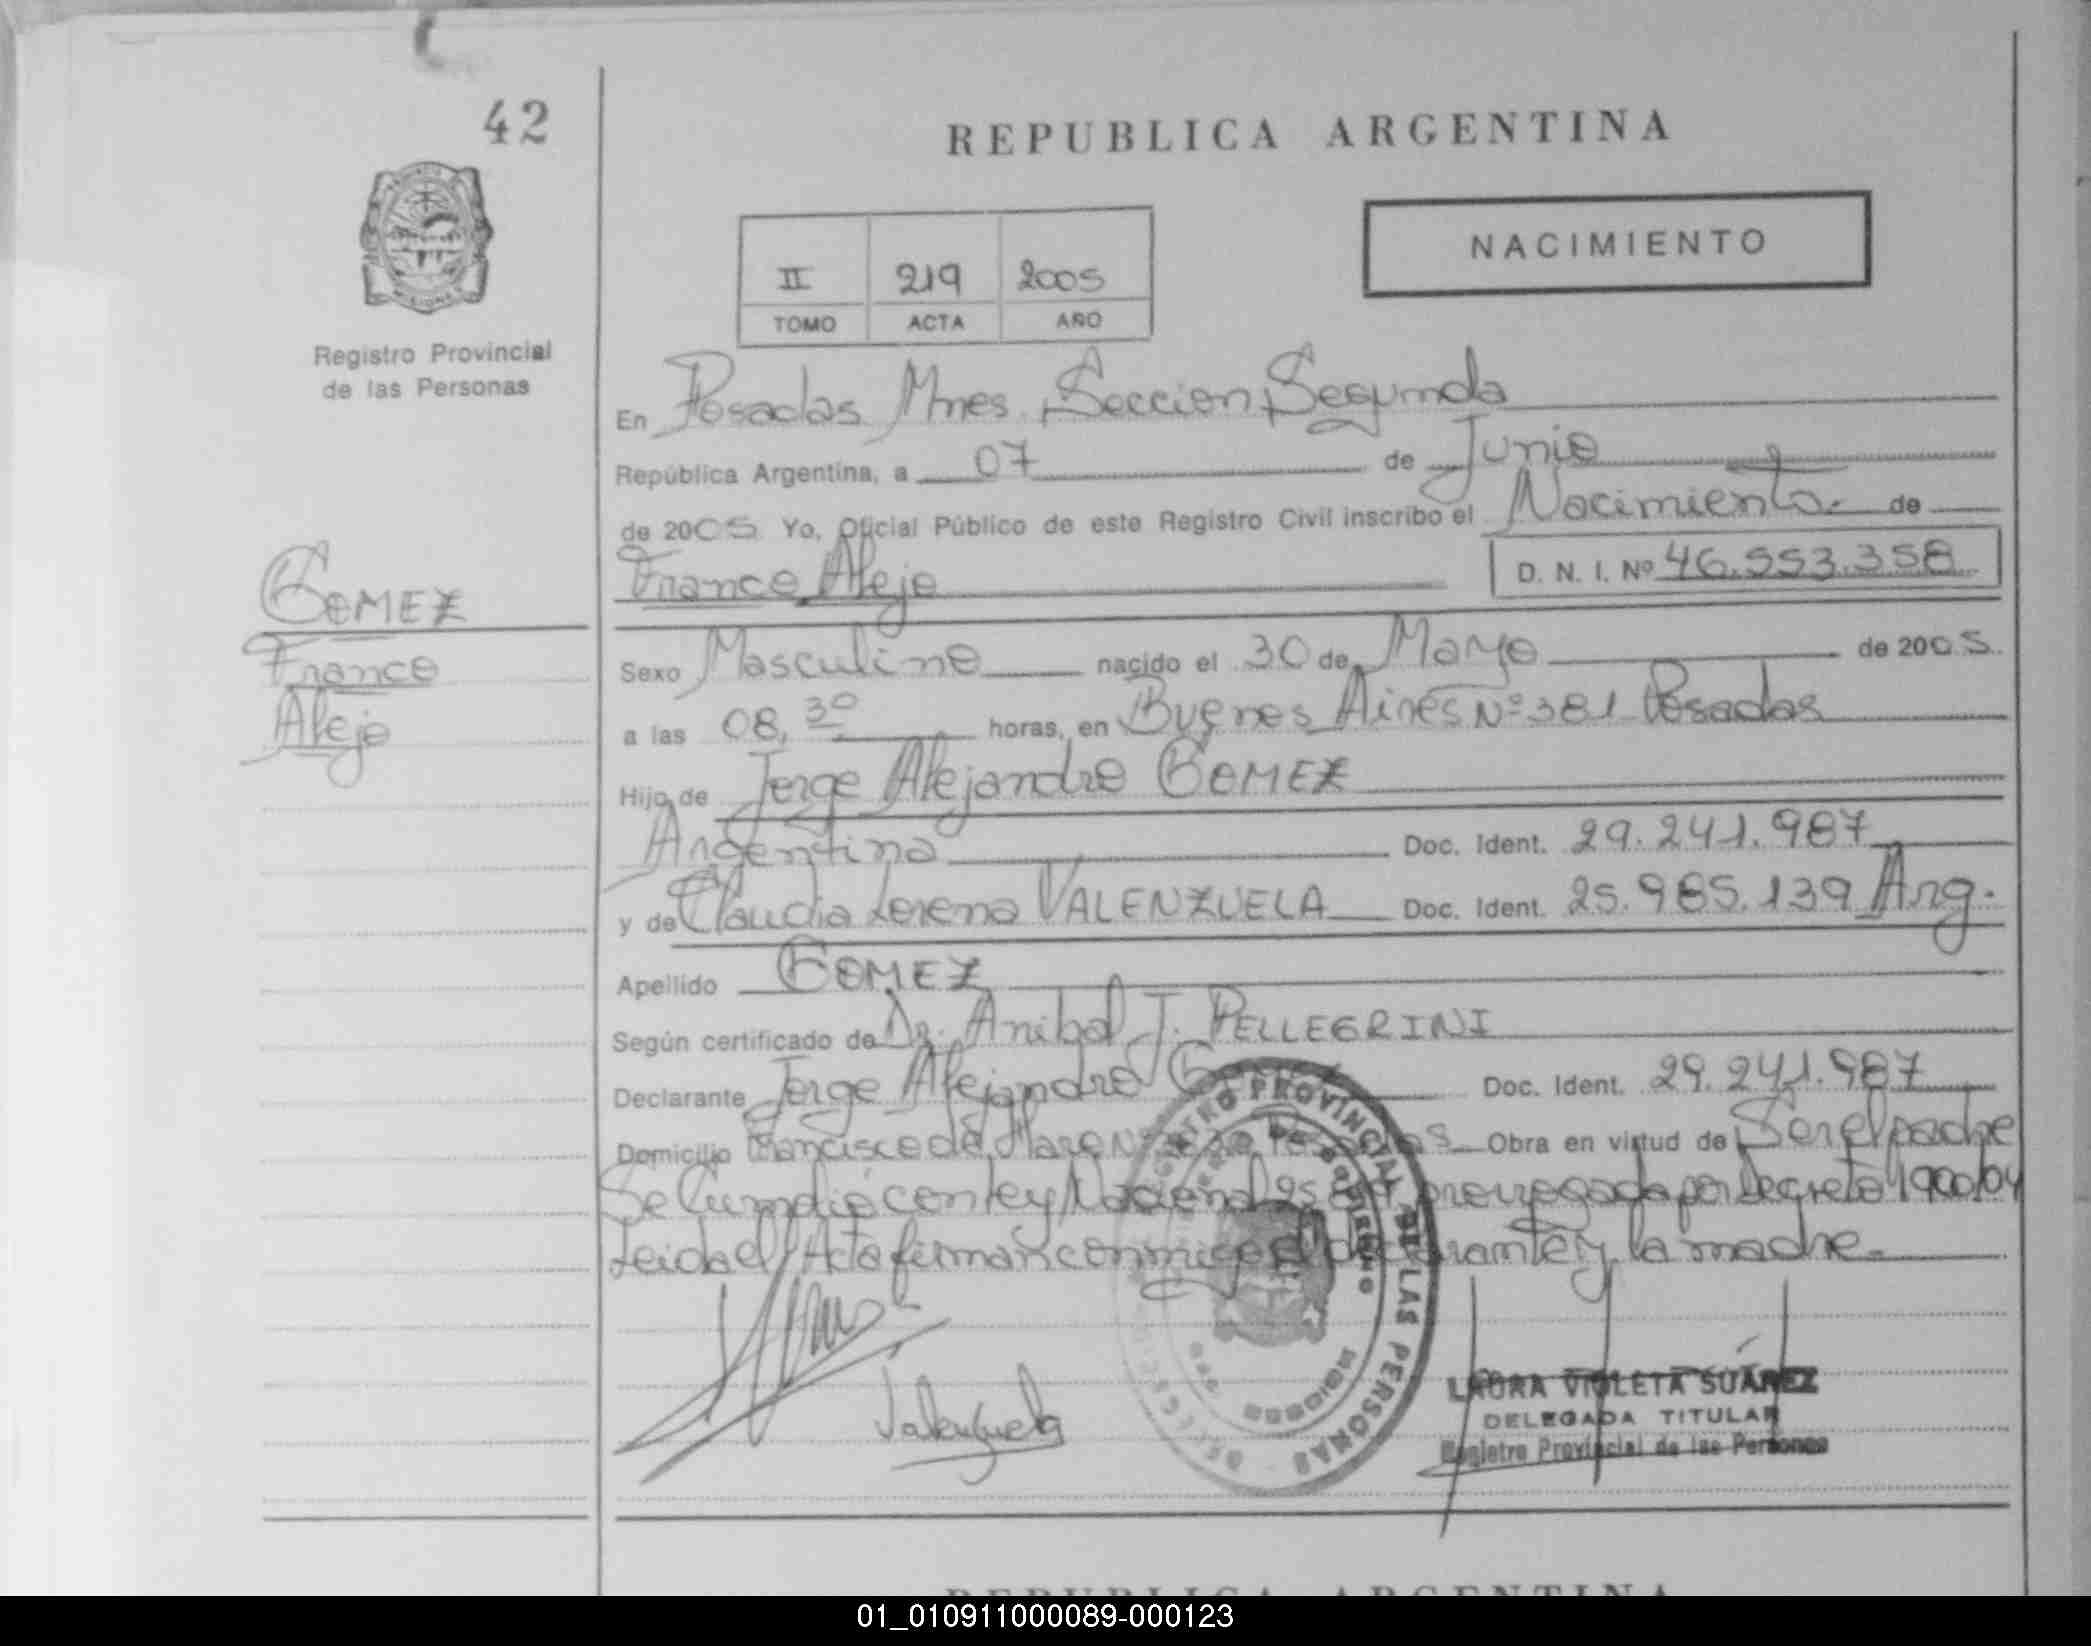 42
REPUBLICA ARGENTINA
NACIMIENTO
II 219 2005
TOMO ACTA AÑO
Registro Provincial
de las Personas
En Posadas Mnes. Seccion Segunda
República Argentina, a 07 de Junio
de 2005 Yo, Oficial Público de este Registro Civil inscribo el Nacimiento de
Franco Alejo D. N. I. Nº 46.553.358
GOMEZ
Franco
Alejo
Sexo Masculino nacido el 30 de Mayo de 2005.
a las 08,30 horas, en Buenos Aires Nº 381 Posadas
Hijo de Jorge Alejandro GOMEZ
Argentina Doc. Ident. 29.241.987
y de Claudia Lorena VALENZUELA Doc. Ident. 25.985.139 Arg.
Apellido GOMEZ
Según certificado de Dr. Anibal J. PELLEGRINI
Declarante Jorge Alejandro Doc. Ident. 29.241.987
Domicilio Francisco de Haro Nº Obra en virtud de Ser el padre
Se Cumplió con ley Nacional prorrogada por Decreto 1900/04
Leida el Acta firman conmigo el declarante y la madre.
Valenzuela
REGISTRO PROVINCIAL DE LAS PERSONAS
MISIONES
LAURA VIOLETA SUÁREZ
DELEGADA TITULAR
Registro Provincial de las Personas
REPUBLICA ARGENTINA
01_010911000089-000123